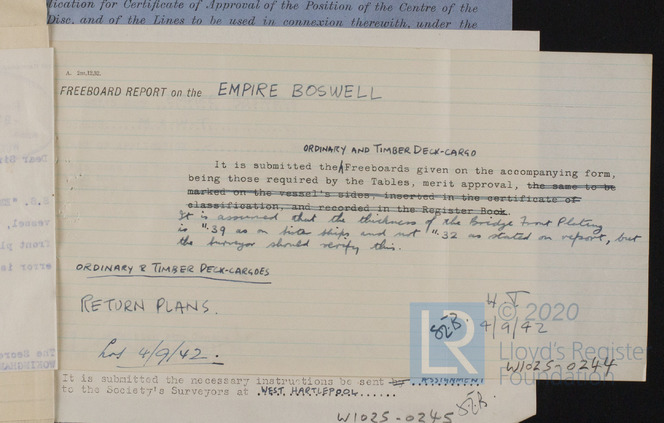 lication for Certificate of Approval of the Position of the Centre of the
Disc, and of the Lines to be used in connexion therewith, under the
FREEBOARD REPORT on the EMPIRE BOSWELL
ORDINARY AND TIMBER DECK-CARGO
It is submitted the Freeboards given on the accompanying form,
being those required by the Tables, merit approval, the same to be
marked on the vessel's sides, inserted in the certificate of
classification, and recorded in the Register Book.
It is assumed that the thickness of the Bridge Front Plating
is ".39 as on sister ships and not ".32 as stated on report, but
the Surveyor should verify this.
ORDINARY & TIMBER DECK-CARGOES
RETURN PLANS.
4/9/42.
4/9/42
LR
© 2020
Lloyd's Register
Foundation
W1025-0244
It is submitted the necessary instructions be sent ASSIGNMENT
to the Society's Surveyors at WEST HARTLEPOOL......
W1025-0245